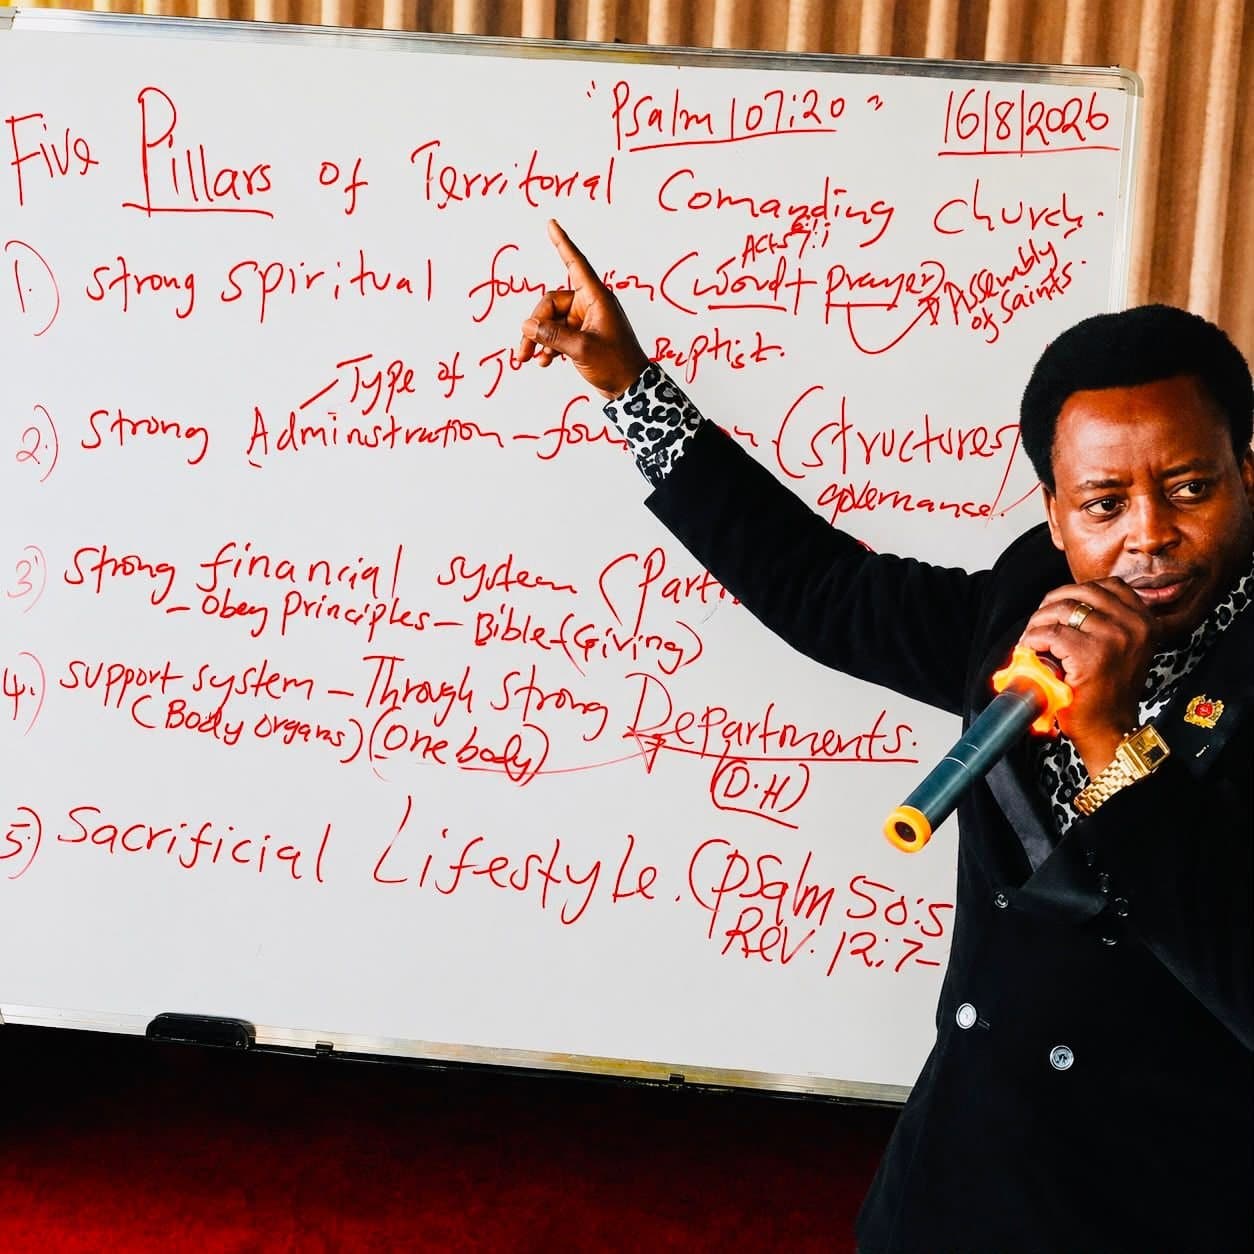 "Psalm 107:20" 16/8/2026
Five Pillars of Territorial Comanding church.
Acts 6:
7:1
1.) Strong Spiritual foun ion (word + prayer)
Assembly
of Saints.
Type of Baptist.
2.) Strong Adminstration - fou n (structures/
governance.
3) Strong financial system (Part
- Obey Principles - Bible - (Giving)
4.) Support system - Through Strong Departments.
(Body organs) (One body)
(D.H)
5.) Sacrificial Lifestyle. (Psalm 50:5
Rev. 12:7-